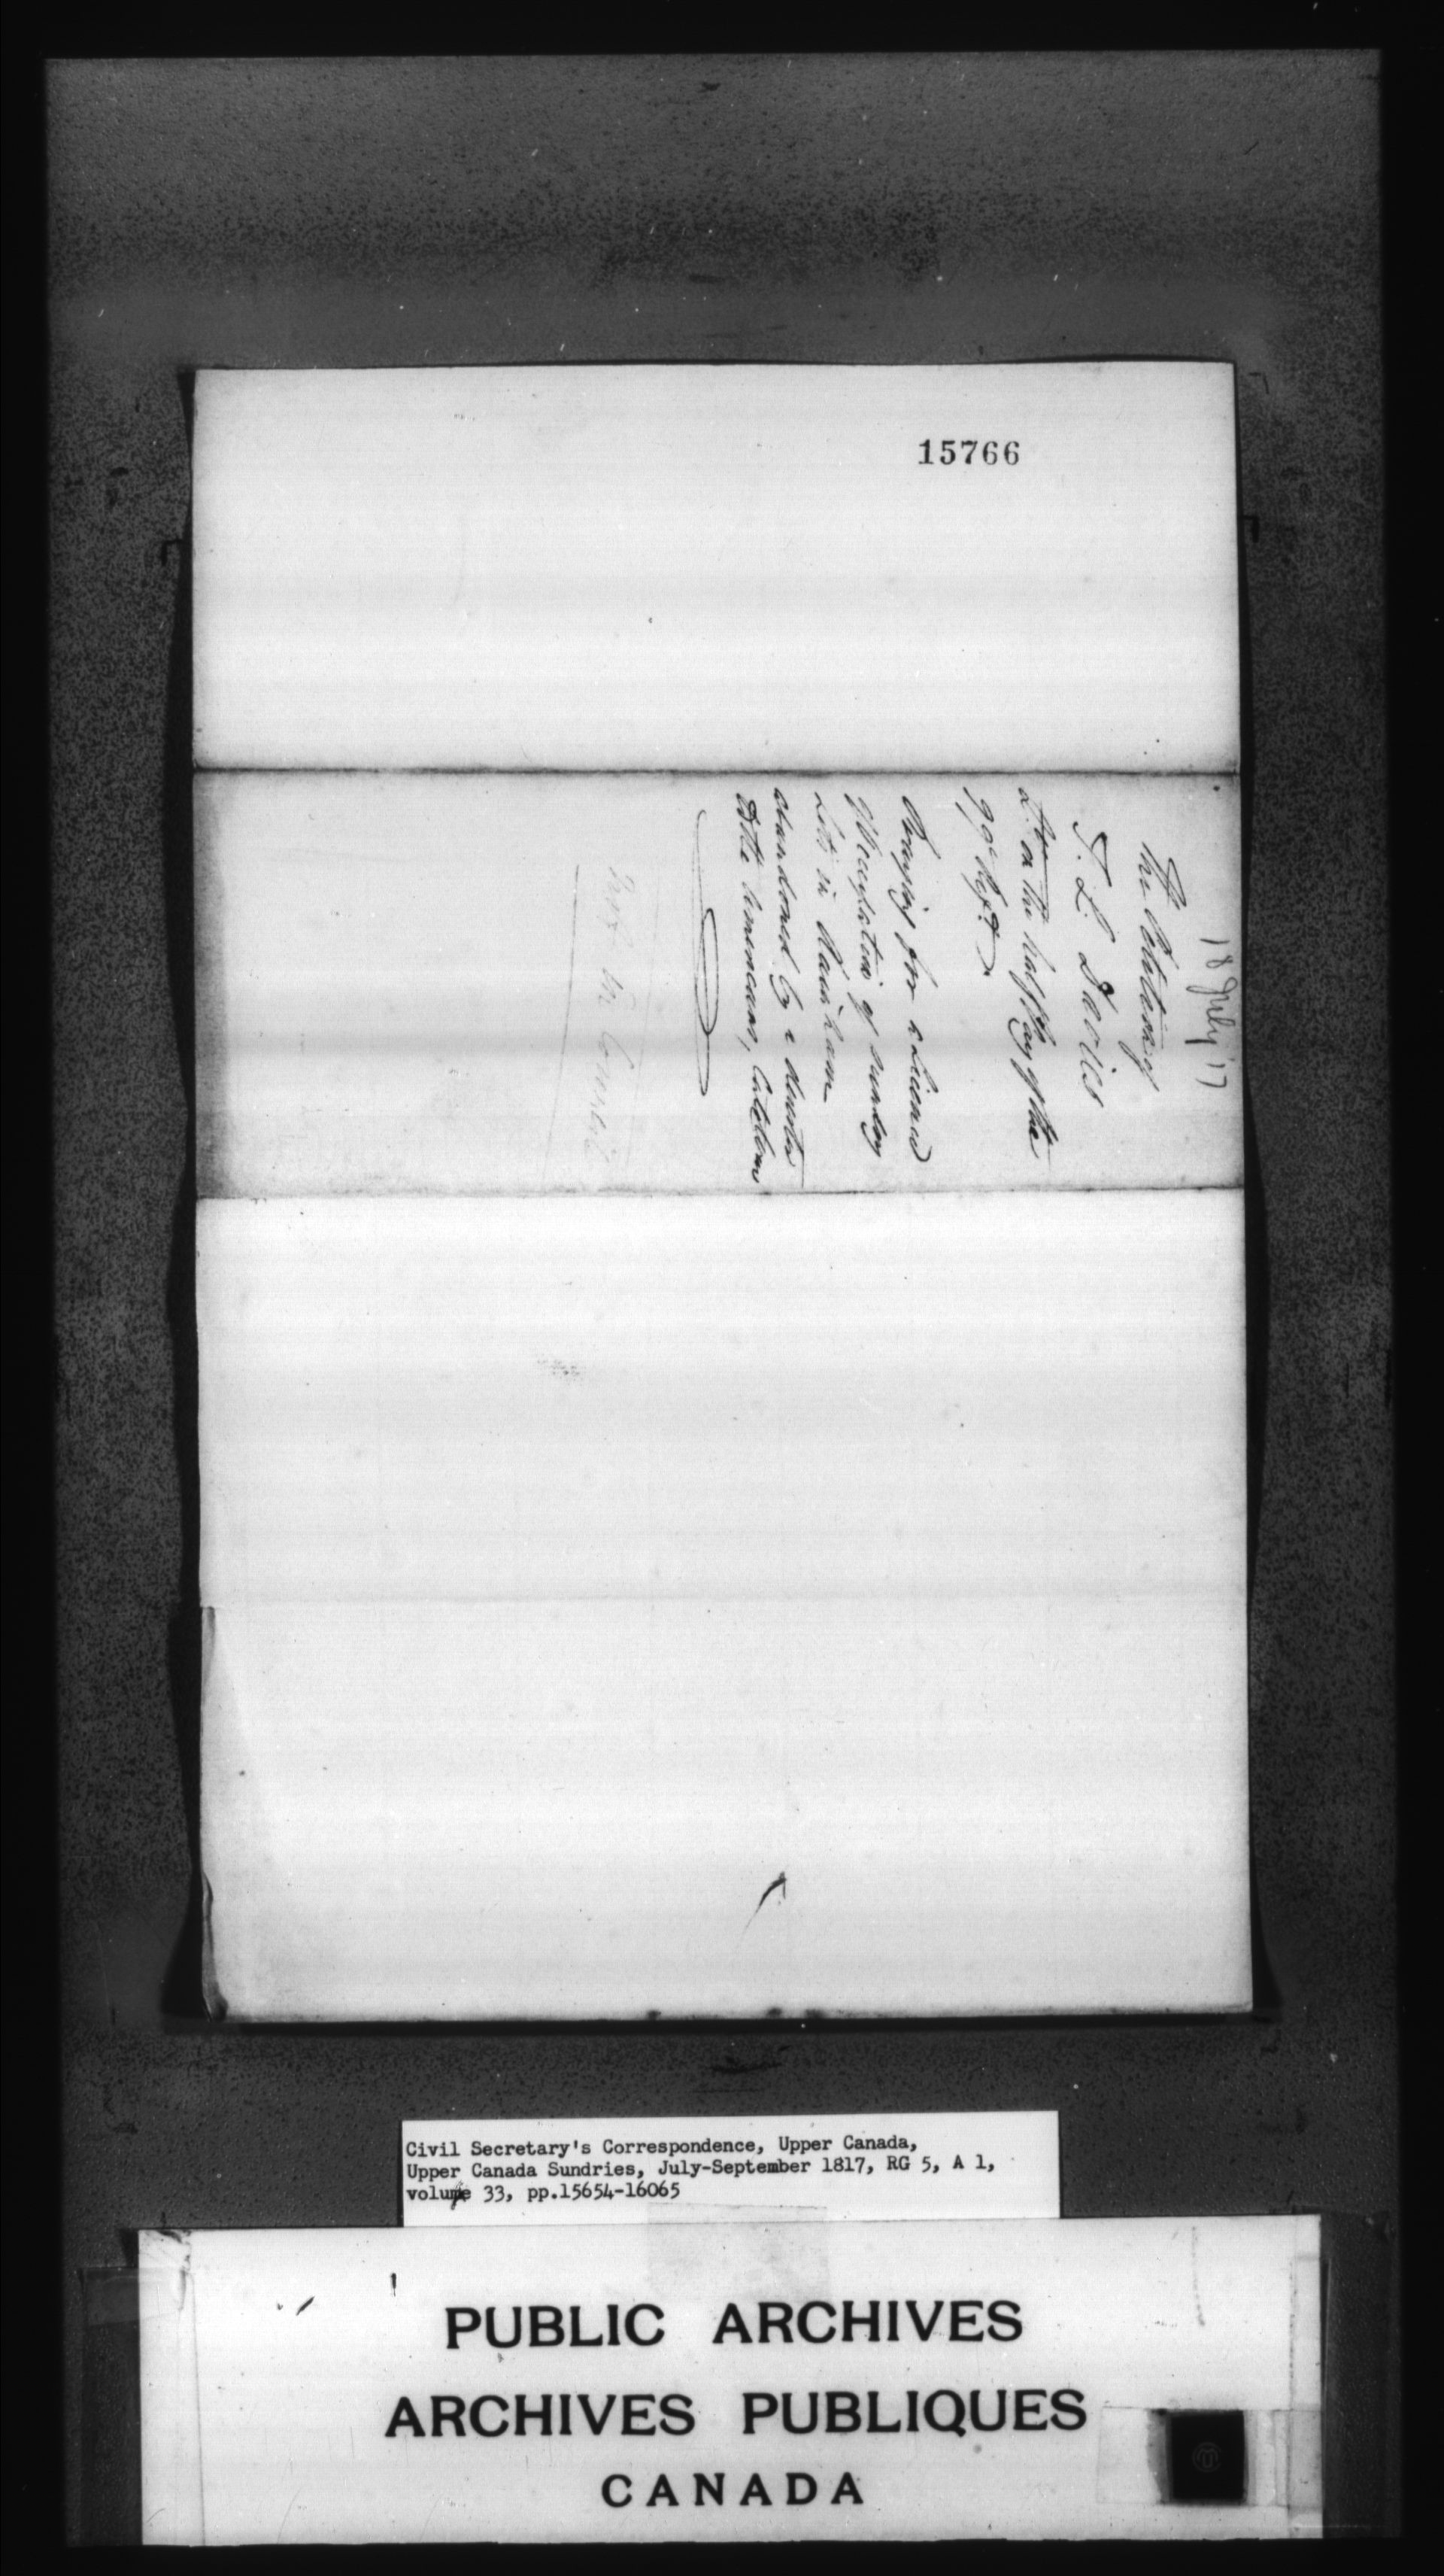 15766
18 July 17
The Petition of
T. L. Davies
Lt. on the half Pay of the
99th Regt.
Praying for a Licence
of Occupation of sundry
Lots in
abandoned by a
the American,
Civil Secretary's Correspondence, Upper Canada,
Upper Canada Sundries, July-September 1817, RG 5, A 1,
volume 33, pp.15654-16065
PUBLIC ARCHIVES
ARCHIVES PUBLIQUES
CANADA